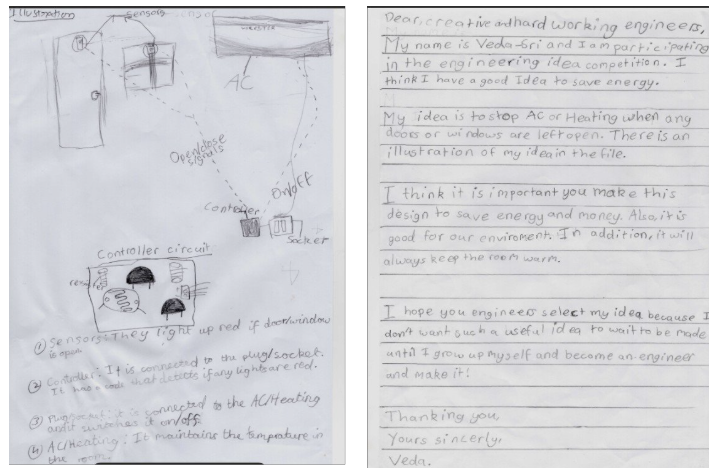 Illustration
sensors
AC
Open/close
signals
On/off
Socket
Controller circuit
① Sensors: They light up red if door/window
is open
② Controller: It is connected to the plug/socket.
It has a code that detects if any lights are red.
③ Plug/socket: it is connected to the AC/Heating
and it switches it on/off.
④ AC/Heating: It maintains the temprature in
the room.
Dear, creative and hard working engineers,
My name is Veda-Sri and I am participating
in the engineering idea competition. I
think I have a good Idea to save energy.
My idea is to stop AC or Heating when any
doors or windows are left open. There is an
illustration of my idea in the file.
I think it is important you make this
design to save energy and money. Also, it is
good for our enviroment. In addition, it will
always keep the room warm.
I hope you engineers select my idea because I
don't want such a useful idea to wait to be made
until I grow up myself and become an engineer
and make it!
Thanking you,
Yours sincerly,
Veda.